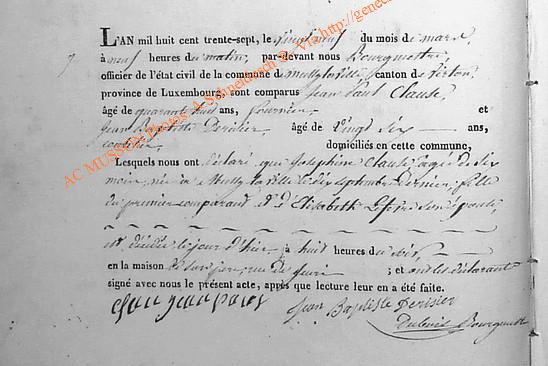 L'AN mil huit cent trente-sept, le vingt neuf du mois de mars
7 à neuf heures du matin, par-devant nous Bourgmestre
officier de l'état civil de la commune de Mussy la ville canton de Virton,
province de Luxembourg, sont comparus Jean Paul Clause
âgé de quarante huit ans, journalier et
Jean Baptiste Derisier âgé de vingt six ans,
domiciliés en cette commune,
Lesquels nous ont déclaré que Josephine Clause agée de six
mois, née à Mussy la ville le dix septembre dernier, fille
du premier comparant et d'Elisabeth son épouse,
est décédée le jour d'hier à huit heures du soir
en la maison de son père ; et ont les déclarant
signé avec nous le présent acte, après que lecture leur en a été faite.
Jean Baptiste Derisier
AC MUSSON Photos A Schneidenbach © - via http://genec